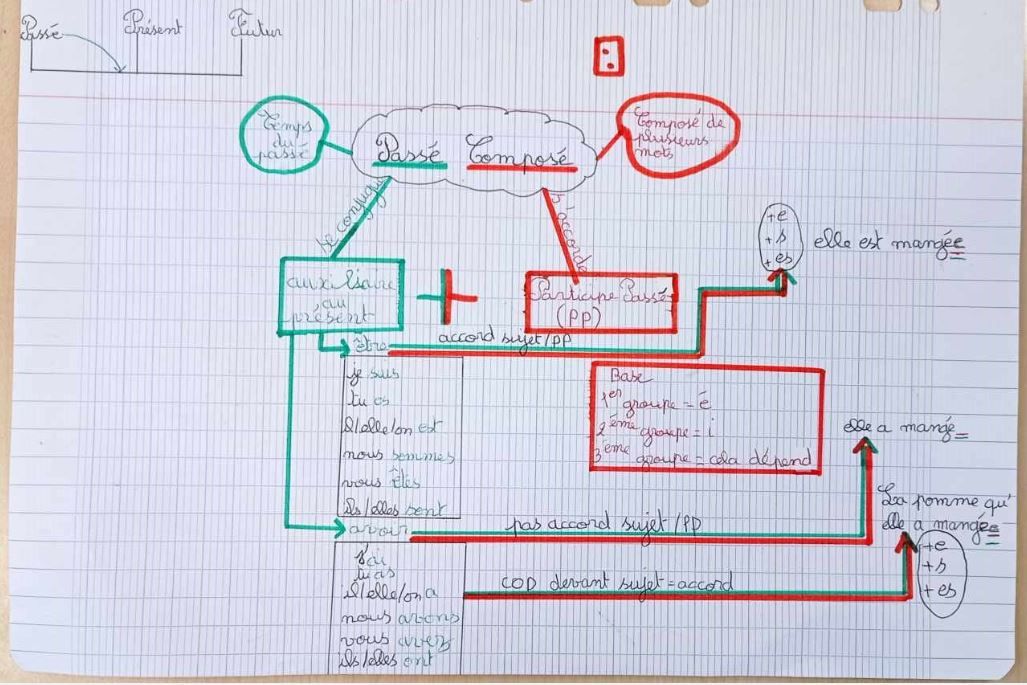 Passé Présent Futur
Temps
du
passé
Passé Composé
Composé de
plusieurs
mots
se conjugue
s'accorde
auxiliaire
au
présent
Participe Passé
(PP)
+e
+s
+es
elle est mangée
être
accord sujet/PP
je suis
tu es
il/elle/on est
nous sommes
vous êtes
ils/elles sont
Base
1er groupe = é
2ème groupe = i
3ème groupe = cela dépend
elle a mangé
avoir
pas accord sujet/PP
La pomme qu'
elle a mangée
j'ai
tu as
il/elle/on a
nous avons
vous avez
ils/elles ont
COD devant sujet = accord
+e
+s
+es